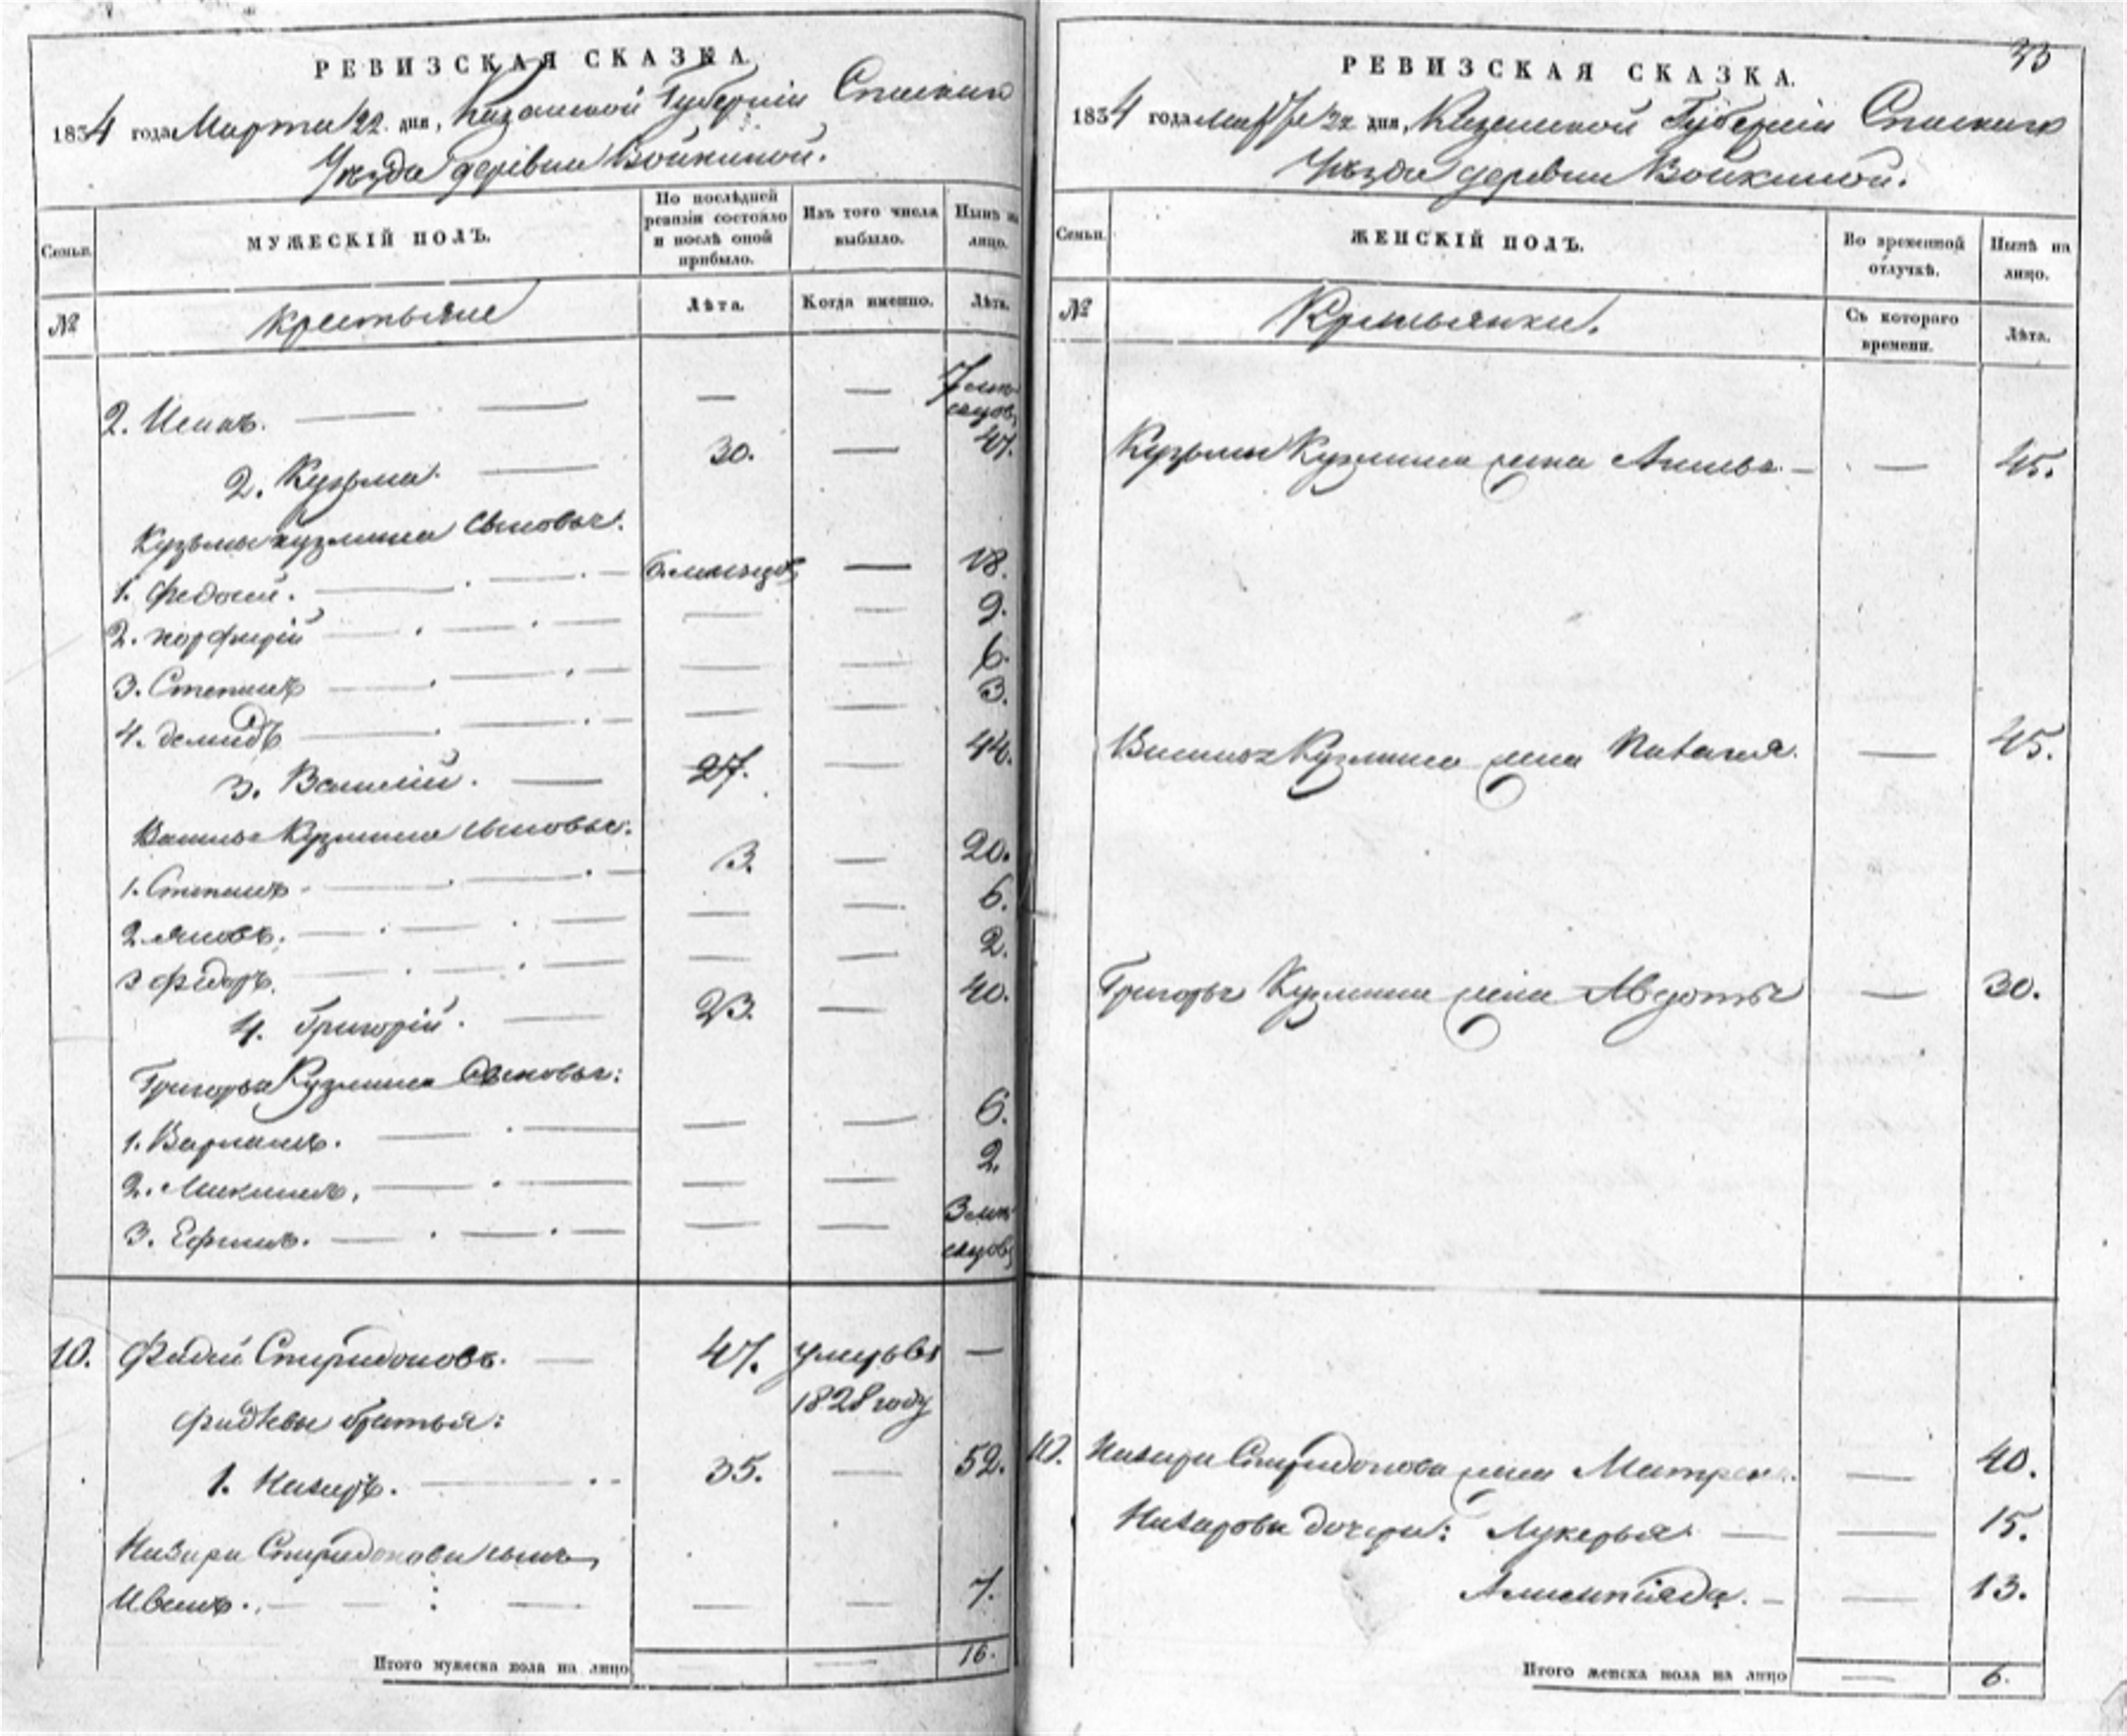 РЕВИЗСКАЯ СКАЗКА
1834 года Марта 22 дня, Казанской Губернiи Спаскаго
Уѣзда деревни Войкиной.
Семьи.
МУЖЕСКIЙ ПОЛЪ.
По послѣдней ревизiи состояло и послѣ оной прибыло.
Изъ того числа выбыло.
Нынѣ на лицо.
№
Крестьяне
Лѣта.
Когда именно.
Лѣта.
2. Исакъ. — — 7 мѣсяцовъ
2. Кузьма. 30. — 47.
Кузьмы Кузмина сыновья.
1. Федосей. 6. месяцовъ — 18.
2. порфирiй — — 9.
3. Степанъ — — 6.
4. демидъ — — 3.
3. Василiй. 27. — 44.
Василья Кузмина сыновья.
1. Степанъ 3. — 20.
2. Яковъ. — — 6.
3 федоръ. — — 2.
4. Григорiй. 23. — 40.
Григорья Кузмина Сыновья:
1. Варламъ. — — 6.
2. — — 2.
3. Ефимъ. — — 3 мѣсяцовъ
10. Фадей Спиридоновъ. 47. умеръ въ 1828 году —
Фадѣевы братья:
1. Назаръ. 35. — 52.
Назара Спиридонова сынъ
Иванъ. — — 7.
Итого мужеска пола на лицо — — 16.
33
РЕВИЗСКАЯ СКАЗКА.
1834 года Марта 22 дня, Казанской Губернiи Спаскаго
Уѣзда деревни Войкиной.
Семьи.
ЖЕНСКIЙ ПОЛЪ.
Во временной отлучкѣ.
Нынѣ на лицо.
№
Крестьянки.
Съ котораго времени.
Лѣта.
Кузьмы Кузмина жена — 45.
Василья Кузмина жена Наталья. — 45.
Григорья Кузмина жена Авдотья — 30.
10. Назара Спиридонова жена Матрена. — 40.
Назаровы дочери: Лукерья — 15.
Алимпiяда. — 13.
Итого женска пола на лицо — 6.